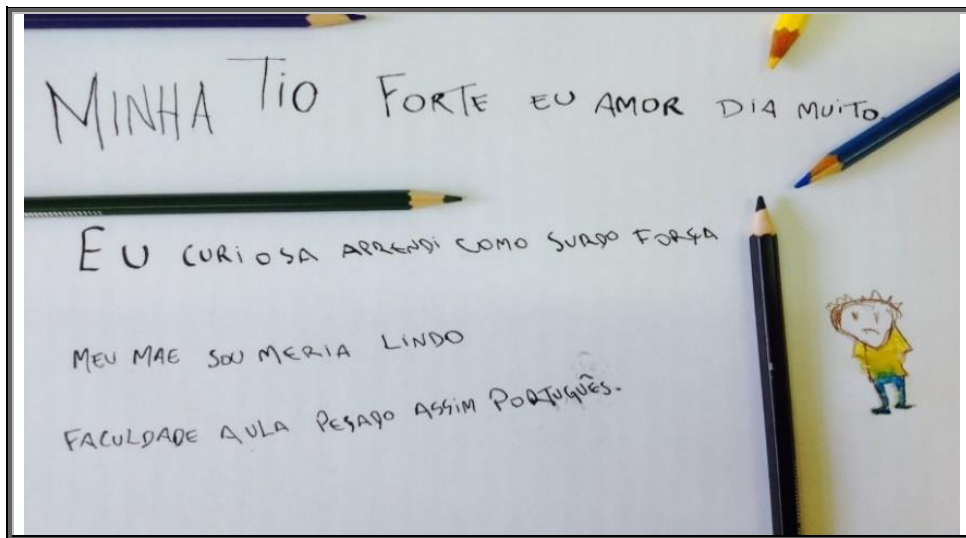 MINHA TIO FORTE EU AMOR DIA MUITO.
EU CURIOSA APRENDI COMO SURDO FORÇA
MEU MAE SOU MERIA LINDO
FACULDADE AULA PESADO ASSIM PORTUGUÊS.